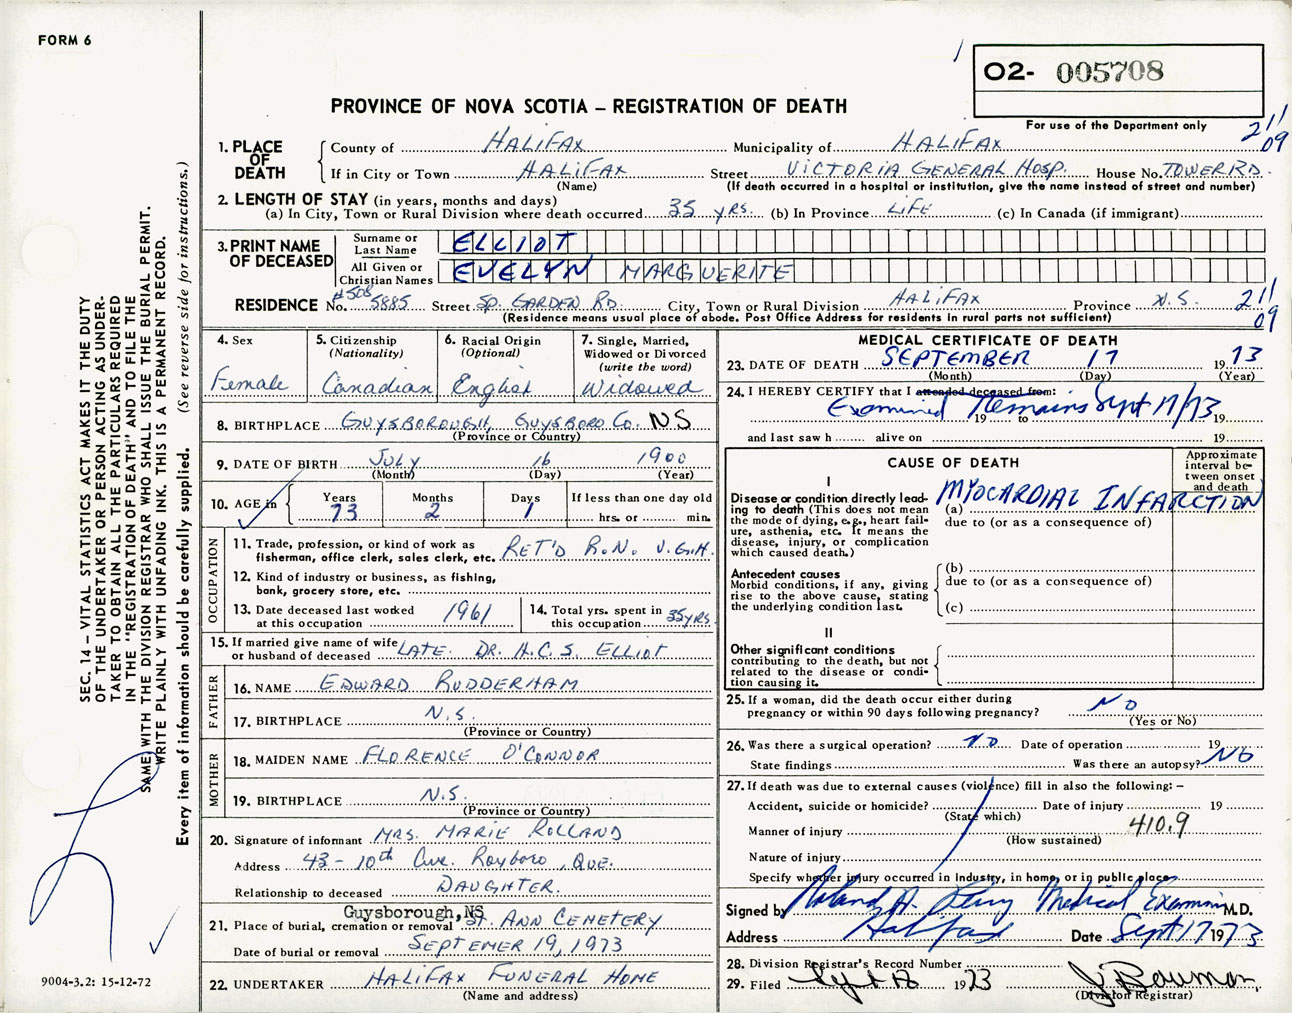 FORM 6
O2- 005708
PROVINCE OF NOVA SCOTIA – REGISTRATION OF DEATH
For use of the Department only
211
09
1. PLACE OF DEATH
County of HALIFAX Municipality of HALIFAX
If in City or Town HALIFAX Street VICTORIA GENERAL HOSP. House No. TOWER RD.
(Name) (If death occurred in a hospital or institution, give the name instead of street and number)
2. LENGTH OF STAY (in years, months and days)
(a) In City, Town or Rural Division where death occurred 35 yrs. (b) In Province LIFE (c) In Canada (if immigrant)
3. PRINT NAME OF DECEASED
Surname or Last Name ELLIOT
All Given or Christian Names EVELYN MARGUERITE
RESIDENCE No. #508 5885 Street SP. GARDEN RD. City, Town or Rural Division HALIFAX Province N.S. 211
09
(Residence means usual place of abode. Post Office Address for residents in rural parts not sufficient)
4. Sex Female
5. Citizenship (Nationality) Canadian
6. Racial Origin (Optional) English
7. Single, Married, Widowed or Divorced (write the word) Widowed
8. BIRTHPLACE GUYSBOROUGH, GUYSBORO CO. NS
(Province or Country)
9. DATE OF BIRTH JULY 16 1900
(Month) (Day) (Year)
10. AGE in Years 73 Months 2 Days 1 If less than one day old hrs. or min.
OCCUPATION
11. Trade, profession, or kind of work as fisherman, office clerk, sales clerk, etc. RET'D R.N. V.G.H.
12. Kind of industry or business, as fishing, bank, grocery store, etc.
13. Date deceased last worked at this occupation 1961
14. Total yrs. spent in this occupation 35 YRS
15. If married give name of wife or husband of deceased LATE. DR. H.C.S. ELLIOT
FATHER
16. NAME EDWARD RUDDERHAM
17. BIRTHPLACE N.S.
(Province or Country)
MOTHER
18. MAIDEN NAME FLORENCE O'CONNOR
19. BIRTHPLACE N.S.
(Province or Country)
20. Signature of informant MRS. MARIE ROLLAND
Address 43 - 10th Ave. Roxboro, QUE.
Relationship to deceased DAUGHTER.
21. Place of burial, cremation or removal Guysborough,NS ST. ANN CEMETERY
Date of burial or removal SEPTEMER 19, 1973
22. UNDERTAKER HALIFAX FUNERAL HOME
(Name and address)
MEDICAL CERTIFICATE OF DEATH
23. DATE OF DEATH SEPTEMBER 17 1973
(Month) (Day) (Year)
24. I HEREBY CERTIFY that I attended deceased from:
Examined Remains Sept 17/73 19 to 19
and last saw h alive on 19
CAUSE OF DEATH
Approximate interval between onset and death
I
Disease or condition directly leading to death (This does not mean the mode of dying, e.g., heart failure, asthenia, etc. It means the disease, injury, or complication which caused death.)
(a) MYOCARDIAL INFARCTION
due to (or as a consequence of)
Antecedent causes
Morbid conditions, if any, giving rise to the above cause, stating the underlying condition last.
(b)
due to (or as a consequence of)
(c)
II
Other significant conditions
contributing to the death, but not related to the disease or condition causing it.
25. If a woman, did the death occur either during pregnancy or within 90 days following pregnancy? NO
(Yes or No)
26. Was there a surgical operation? NO Date of operation 19
State findings Was there an autopsy? NO
27. If death was due to external causes (violence) fill in also the following: –
Accident, suicide or homicide? Date of injury 19
(State which)
Manner of injury 410.9
(How sustained)
Nature of injury
Specify whether injury occurred in Industry, in home, or in public place
Signed by Roland A. Perry Medical Examiner M.D.
Address Halifax Date Sept 17 1973
28. Division Registrar's Record Number
29. Filed Sept 18 1973 J. Bauman
(Division Registrar)
SEC. 14 – VITAL STATISTICS ACT MAKES IT THE DUTY
OF THE UNDERTAKER OR PERSON ACTING AS UNDER-
TAKER TO OBTAIN ALL THE PARTICULARS REQUIRED
IN THE "REGISTRATION OF DEATH" AND TO FILE THE
SAME WITH THE DIVISION REGISTRAR WHO SHALL ISSUE THE BURIAL PERMIT.
WRITE PLAINLY WITH UNFADING INK. THIS IS A PERMANENT RECORD.
Every item of information should be carefully supplied. (See reverse side for instructions.)
9004-3.2: 15-12-72